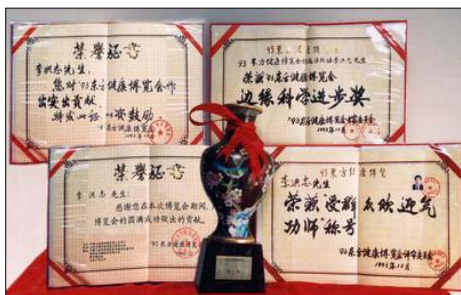 荣誉证书
李洪志先生:
您对'93东方健康博览会作
出突出贡献,
特发此证,以资鼓励
'93东方健康博览会
1993年12月
'93东方健康博览会
荣获'93东方健康博览会
边缘科学进步奖
1993年12月
荣誉证书
李洪志先生:
感谢您在本次博览会期间,
博览会的圆满成功做出的贡献。
'93东方健康博览会
'93东方健康博览
李洪志先生
荣获受群众欢迎气
功师"称号
'93东方健康博览会评审委员会
1993年12月